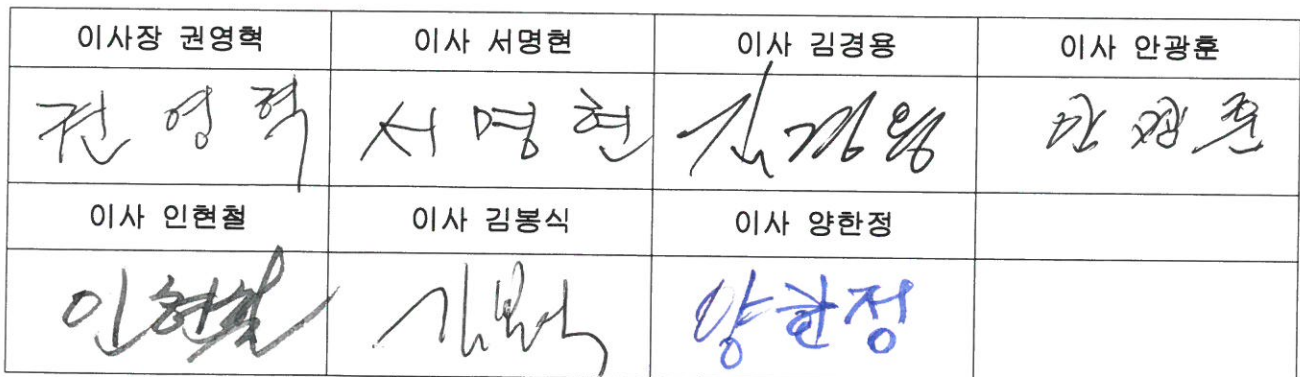 이사장 권영혁 이사 서명현 이사 김경용 이사 안광훈
권영혁 서명현 김경용 안광훈
이사 인현철 이사 김봉식 이사 양한정
인현철 김봉식 양한정